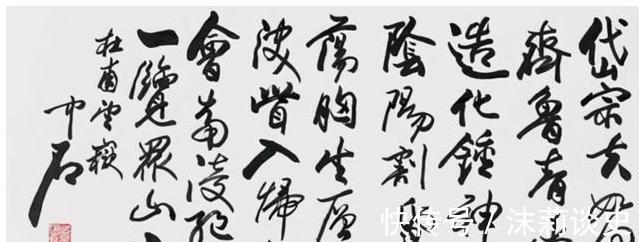 岱宗夫如
齊魯青
造化鍾神
陰陽割
蕩胸生層
決眥入歸
會當凌絕
一覽眾山
杜甫望嶽
中石
快传号 / 沫莉谈史